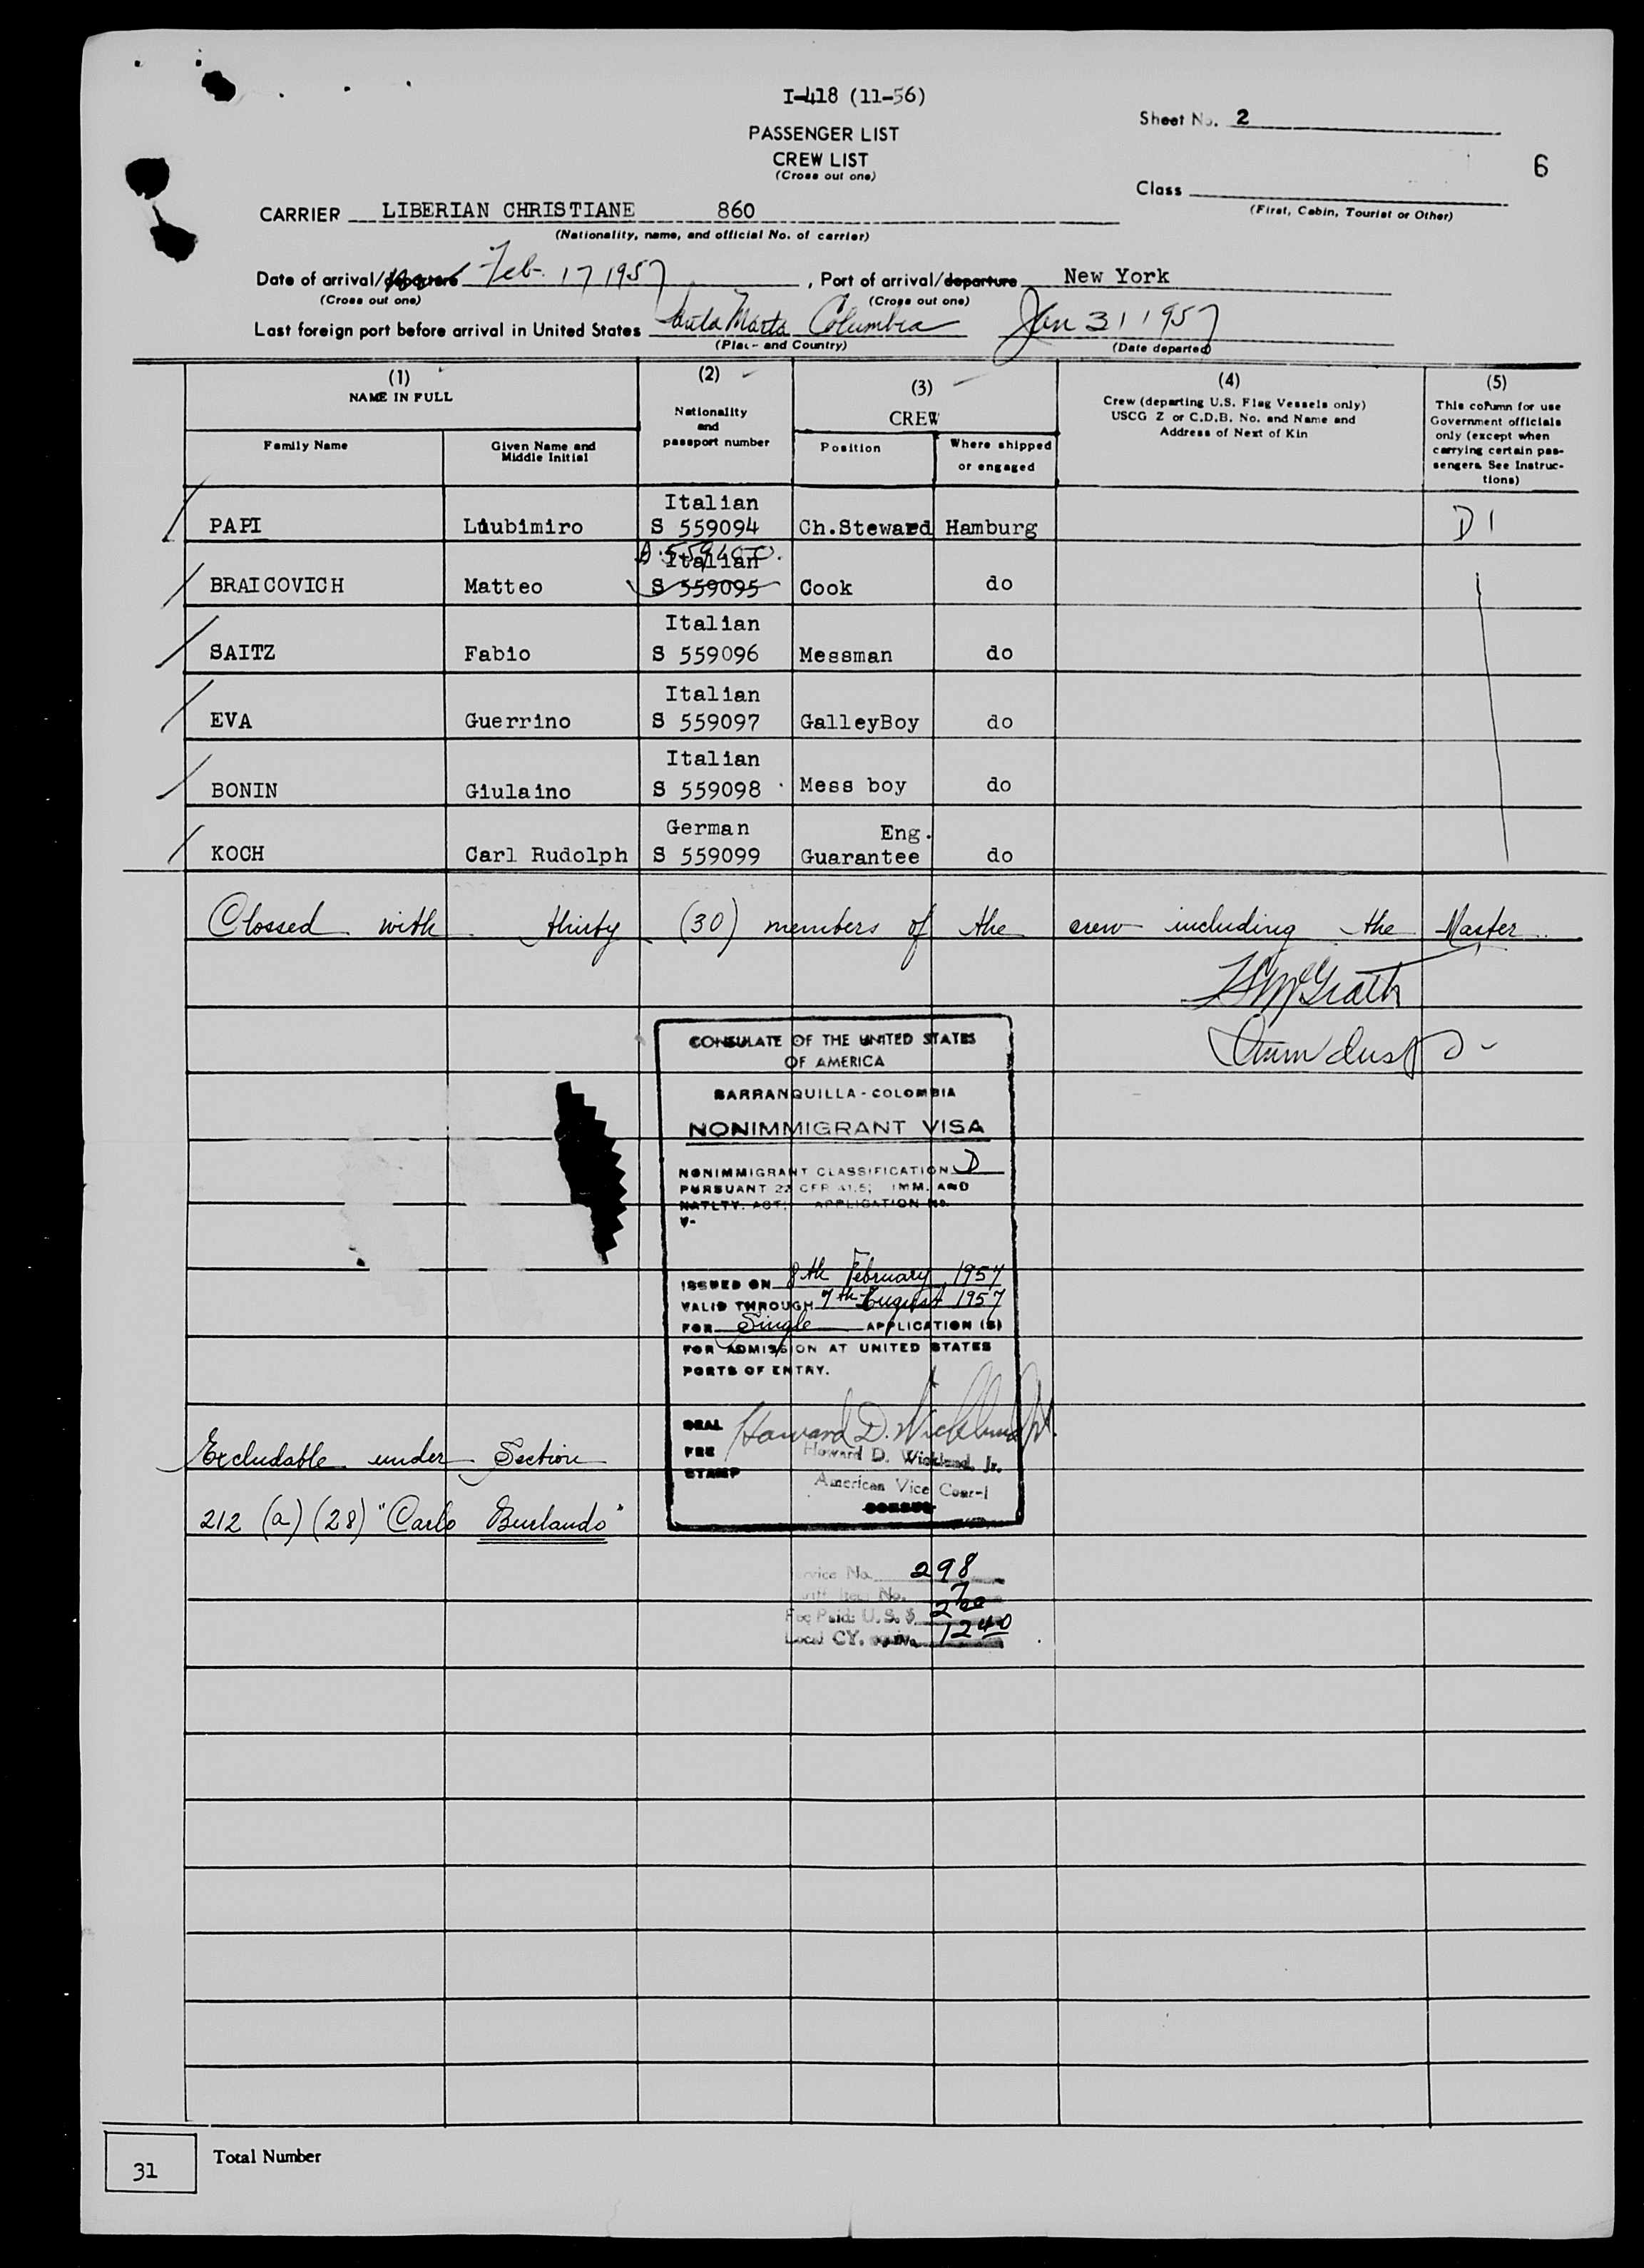 I-418 (11-56)
PASSENGER LIST
CREW LIST
(Cross out one)
Sheet No. 2
6
Class
(First, Cabin, Tourist or Other)
CARRIER LIBERIAN CHRISTIANE 860
(Nationality, name, and official No. of carrier)
Date of arrival/departure Feb. 17 1957, Port of arrival/departure New York
(Cross out one) (Cross out one)
Last foreign port before arrival in United States Santa Marta Columbia Jan 31 1957
(Place and Country) (Date departed)
(1) (2) (3) (4) (5)
NAME IN FULL
Family Name
Given Name and
Middle Initial
Nationality
and
passport number
CREW
Position
Where shipped
or engaged
Crew (departing U.S. Flag Vessels only)
USCG Z or C.D.B. No. and Name and
Address of Next of Kin
This column for use
Government officials
only (except when
carrying certain pas-
sengers. See Instruc-
tions)
Italian
PAPI Liubimiro S 559094 Ch.Steward Hamburg D 1
Italian
BRAICOVICH Matteo S 559095 Cook do
Italian
SAITZ Fabio S 559096 Messman do
Italian
EVA Guerrino S 559097 GalleyBoy do
Italian
BONIN Giulaino S 559098 Mess boy do
German Eng.
KOCH Carl Rudolph S 559099 Guarantee do
Clossed with thirty (30) members of the crew including the Master
McGrath
CONSULATE OF THE UNITED STATES
OF AMERICA
BARRANQUILLA - COLOMBIA
NONIMMIGRANT VISA
NONIMMIGRANT CLASSIFICATION D
PURSUANT 22 CFR 41.5; IMM. AND
NATLTY. ACT; APPLICATION NO.
V-
ISSUED ON 8th February 1957
VALID THROUGH 7th August 1957
FOR Single APPLICATION (S)
FOR ADMISSION AT UNITED STATES
PORTS OF ENTRY.
SEAL
FEE
STAMP
Howard D. Wicklund Jr.
Howard D. Wicklund, Jr.
American Vice Consul
Excludable under Section
212 (a) (28) "Carlo Burlando"
Service No. 298
Tariff Item No. 7
Fee Paid: U.S. $ 2.00
Local CY. equiv. 12.40
31
Total Number